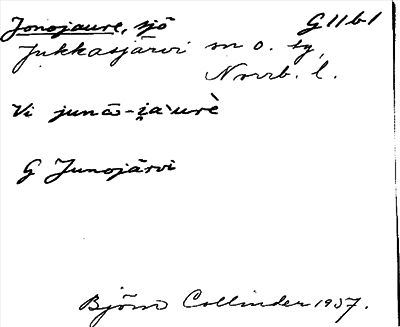 Jonojaure, sjö G11b1
Jukkasjärvi sn o. tg,
Norrb. l.
Vi junā-i̯a`urè
G Junojärvi
Björn Collinder 1937.